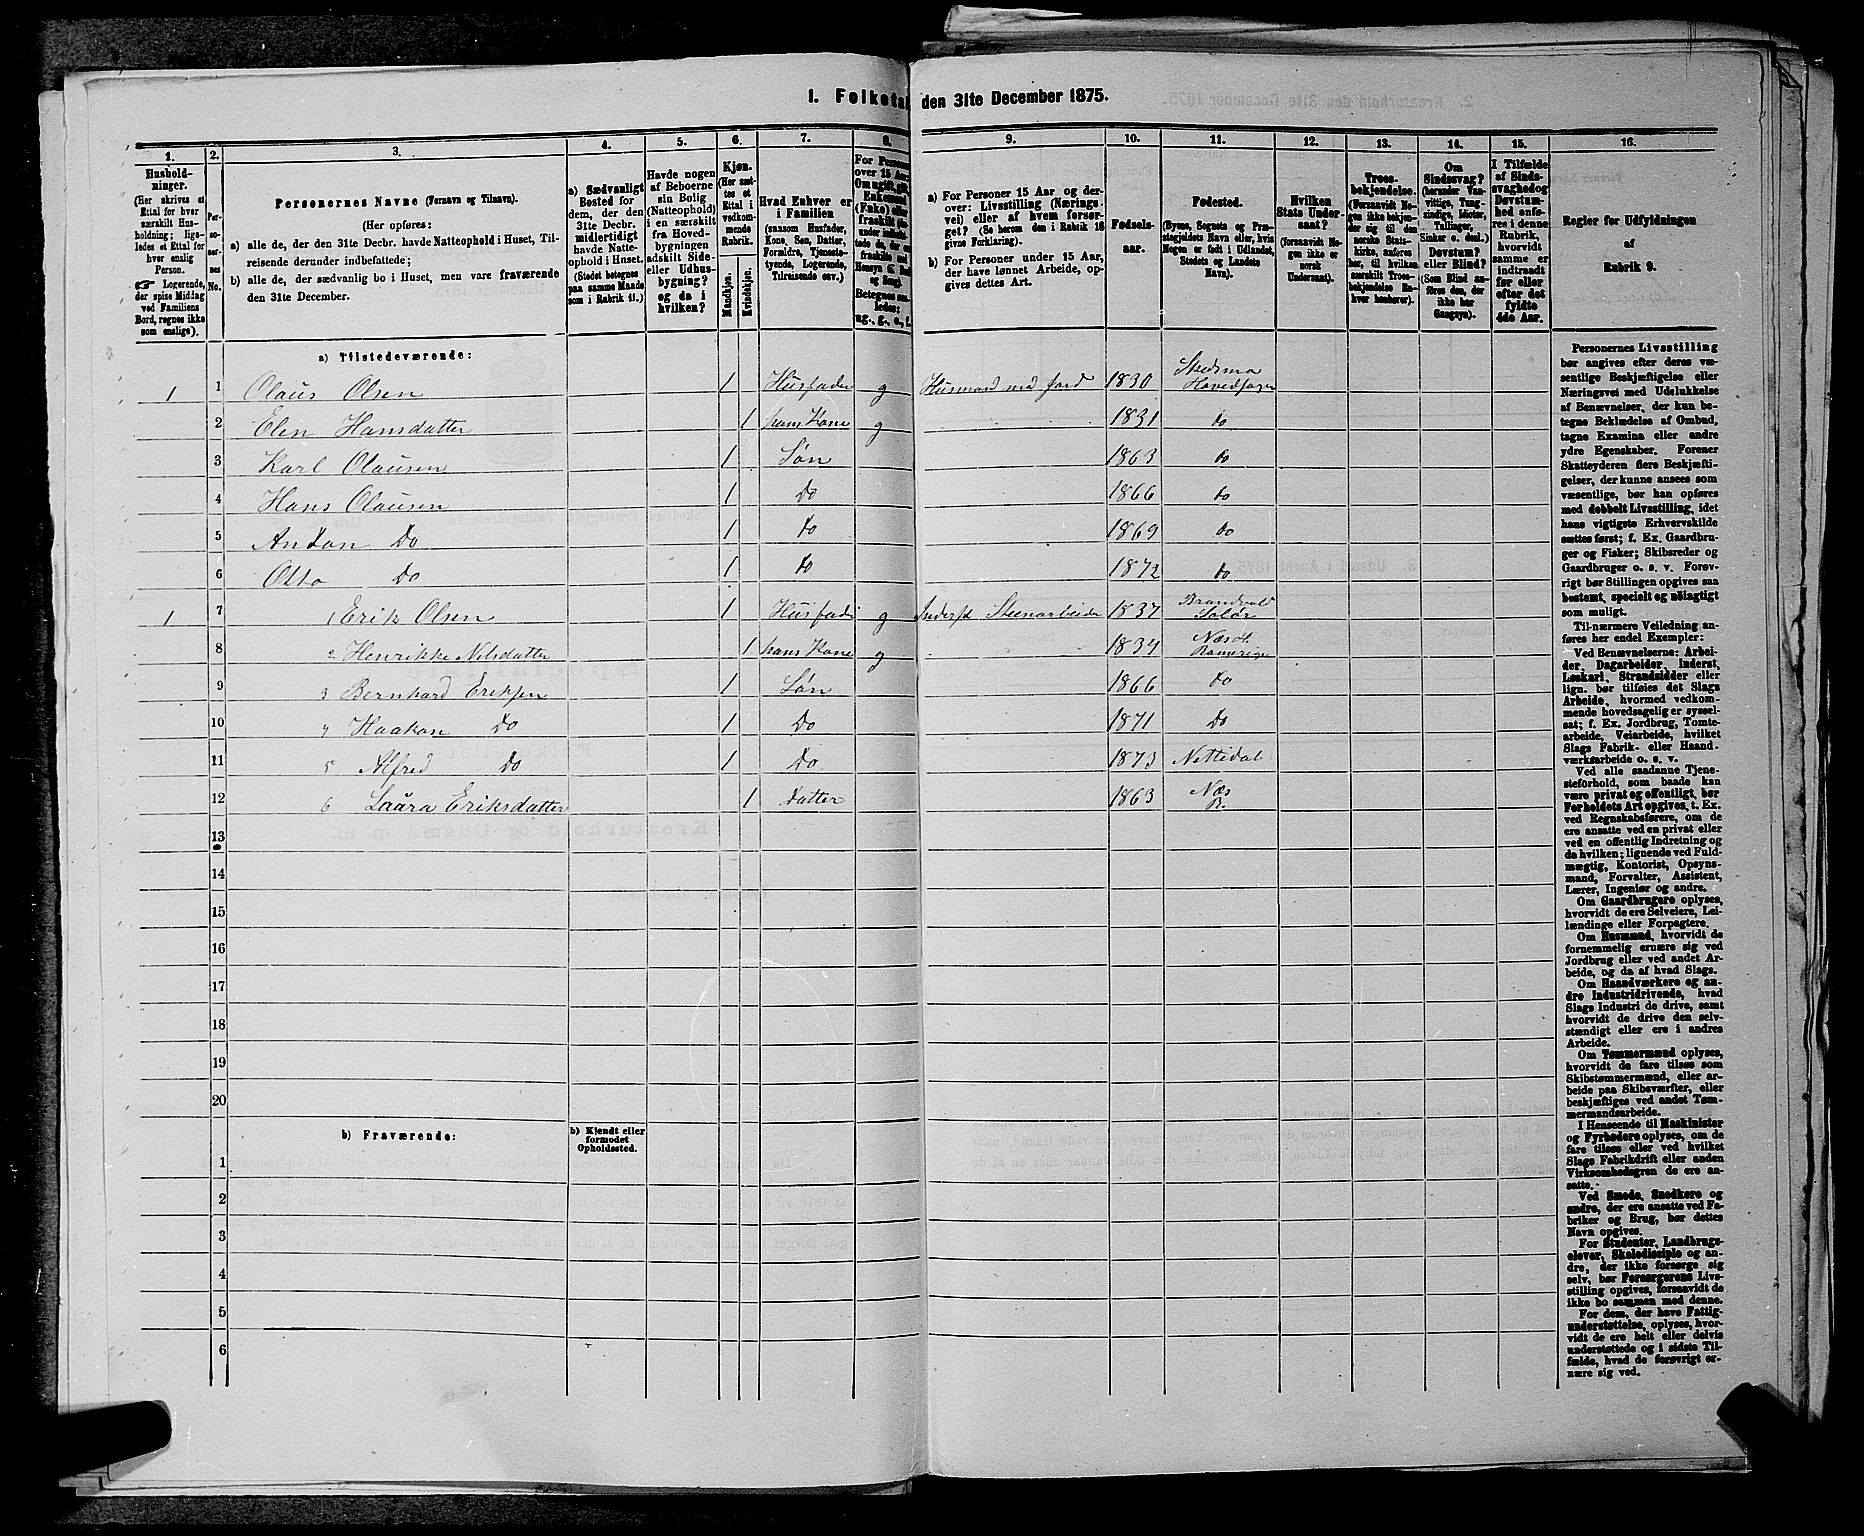 1. Folketal den 31te December 1875.
1. 2. 3. 4. 5. 6. 7. 8. 9. 10. 11. 12. 13. 14. 15. 16.
Hushold-
ninger.
(Her skrives et
Ettal for hver
særskilt Hus-
holdning; lige-
ledes et Ettal for
hver enslig
Person.
Logerende,
der spise Middag
ved Familiens
Bord, regnes ikke
som enslige).
Per-
so-
ner-
nes
No.
Personernes Navne (Fornavn og Tilnavn).
(Her opføres:
a) alle de, der den 31te Decbr. havde Natteophold i Huset, Til-
reisende derunder indbefattede;
b) alle de, der sædvanlig bo i Huset, men vare fraværende
den 31te December.
a) Sædvanligt
Bosted for
dem, der den
31te Decbr.
midlertidigt
havde Natte-
ophold i Huset.
(Stedet betegnes
paa samme Maade
som i Rubrik 11.)
Havde nogen
af Beboerne
sin Bolig
(Natteophold)
i en særskilt
fra Hoved-
bygningen
adskilt Side-
eller Udhus-
bygning?
og da i
hvilken?
Kjøn.
(Her sæt-
tes et
Ettal i
vedkom-
mende
Rubrik.
Mandkjøn.
Kvindekjøn.
Hvad Enhver er
i Familien
(saasom Husfader,
Kone, Søn, Datter,
Forældre, Tjeneste-
tyende, Logerende,
Tilreisende osv.)
For Personer
over 15 Aar:
a) For Personer 15 Aar og der-
over: Livsstilling (Nærings-
vei) eller af hvem forsør-
get? (Se herom den i Rubrik 16
givne Forklaring).
b) For Personer under 15 Aar,
der have lønnet Arbeide, op-
gives dettes Art.
Fødsels-
aar.
Fødested.
(Byens, Sognets og Præ-
stegjeldets Navn eller, hvis
Nogen er født i Udlandet,
Stedets og Landets
Navn).
Hvilken
Stats Under-
saat?
(forsaavidt No-
gen ikke er
norsk
Undersaat).
Troes-
bekjendelse.
(Forsaavidt No-
gen ikke bekjen-
der sig til den
norske Stats-
kirke, anføres
her, til hvilken
særskilt Troes-
bekjendelse En-
hver henhører).
Om
Sindssvag?
(herunder Van-
vittige, Tung-
sindige, Idioter,
Tullinger,
Sinker o. desl.)
Døvstum?
eller Blind?
(Som Blind an-
føres den, der
ikke har
Gangsyn).
I Tilfælde
af Sinds-
svaghed og
Døvstum-
hed anfø-
res i denne
Rubrik,
hvorvidt
samme er
indtraadt
før eller
efter det
fyldte
4de Aar.
Regler for Udfyldningen
af
Rubrik 9.
a) Tilstedeværende:
1 1 Olaus Olsen 1 Husfader g Husmand med jord 1830 Skedsmo Hovedsogn
2 Elen Hansdatter 1 hans Kone g 1831 do
3 Karl Olausen 1 Søn 1863 do
4 Hans Olausen 1 Do 1866 do
5 Anton Do 1 Do 1869 do
6 Otto Do 1 Do 1872 do
1 7 1 Erik Olsen 1 Husfader g Inderst Steenarbeider 1837 Brandvold Solør
8 2 Henrikke Nilsdatter 1 hans Kone g 1834 Næs Romerige
9 3 Bernhard Eriksen 1 Søn 1866 do
10 4 Haakon Do 1 Do 1871 Do
11 5 Alfred Do 1 Do 1873 Nittedal
12 6 Laura Eriksdatter 1 Datter 1863 Næs R.
13
14
15
16
17
18
19
20
b) Fraværende:
b) Kjendt eller
formodet
Opholdssted.
1
2
3
4
5
6
Personernes Livsstilling
bør angives efter deres væ-
sentlige Beskjæftigelse eller
Næringsvei med Udelukkelse
af Benævnelser, der kun be-
tegne Beklædelse af Ombud,
tagne Examina eller andre
ydre Egenskaber. Forener
Skatteyderen flere Beskjæfti-
gelser, der kunne ansees som
væsentlige, bør han opføres
med dobbelt Livsstilling, idet
hans vigtigste Erhvervskilde
sættes først; f. Ex. Gaardbru-
ger og Fisker; Skibsreder og
Gaardbruger o. s. v. Forøv-
rigt bør Stillingen opgives saa
bestemt, specielt og nøiagtigt
som muligt.
Til nærmere Veiledning an-
føres her endel Exempler:
Ved Benævnelserne: Arbei-
der, Dagarbeider, Inderst,
Løskarl, Strandsidder eller
lign. bør tilføies det Slags
Arbeide, hvormed vedkom-
mende hovedsagelig er syssel-
sat; f. Ex. Jordbrug, Tomte-
arbeide, Veiarbeide, hvilket
Slags Fabrik- eller Haand-
værksarbeide o. s. v.
Ved alle saadanne Tjene-
steforhold, som baade kan
være privat og offentligt, bør
Forholdets Art opgives, t. Ex.
ved Regnskabsførere, om de
ere ansatte ved en privat eller
ved en offentlig Indretning og
da hvilken; lignende ved Fuld-
mægtig, Kontorist, Opsyns-
mand, Forvalter, Assistent,
Lærer, Ingeniør og andre.
Om Gaardbrugere oplyses,
hvorvidt de ere Selveiere, Lei-
lændinge eller Forpagtere.
Om Husmænd, hvorvidt de
fornemmelig ernære sig ved
Jordbrug eller ved andet Ar-
beide, og da af hvad Slags.
Om Haandværkere og an-
dre Industridrivende, hvad
Slags Industri de drive, samt
hvorvidt de drive den selv-
stændigt eller ere i andres
Arbeide.
Om Tømmermænd oplyses,
hvorvidt de fare tilsøs som
Skibstømmermænd, eller ar-
beide paa Skibsværfter, eller
beskjæftiges ved andet Tøm-
mermandsarbeide.
I Henseende til Maskinister
og Fyrbødere oplyses, om de
fare tilsøs eller ved hvilket
Slags Fabrikdrift eller anden
Virksomhedsgren de ere an-
satte.
Ved Smede, Snedkere og
andre, der ere ansatte ved Fa-
briker og Brug, bør dettes
Navn opgives.
For Studenter, Landbrugs-
elever, Skoledisciple og an-
dre, der ikke forsørge sig
selv, bør Forsørgerens Livs-
stilling opgives, forsaavidt de
ikke bo sammen med denne.
For dem, der have Fattig-
understøttelse, oplyses, hvor-
vidt de ere helt eller delvis
understøttede og i sidste Til-
fælde, hvad de forøvrigt er-
nære sig ved.